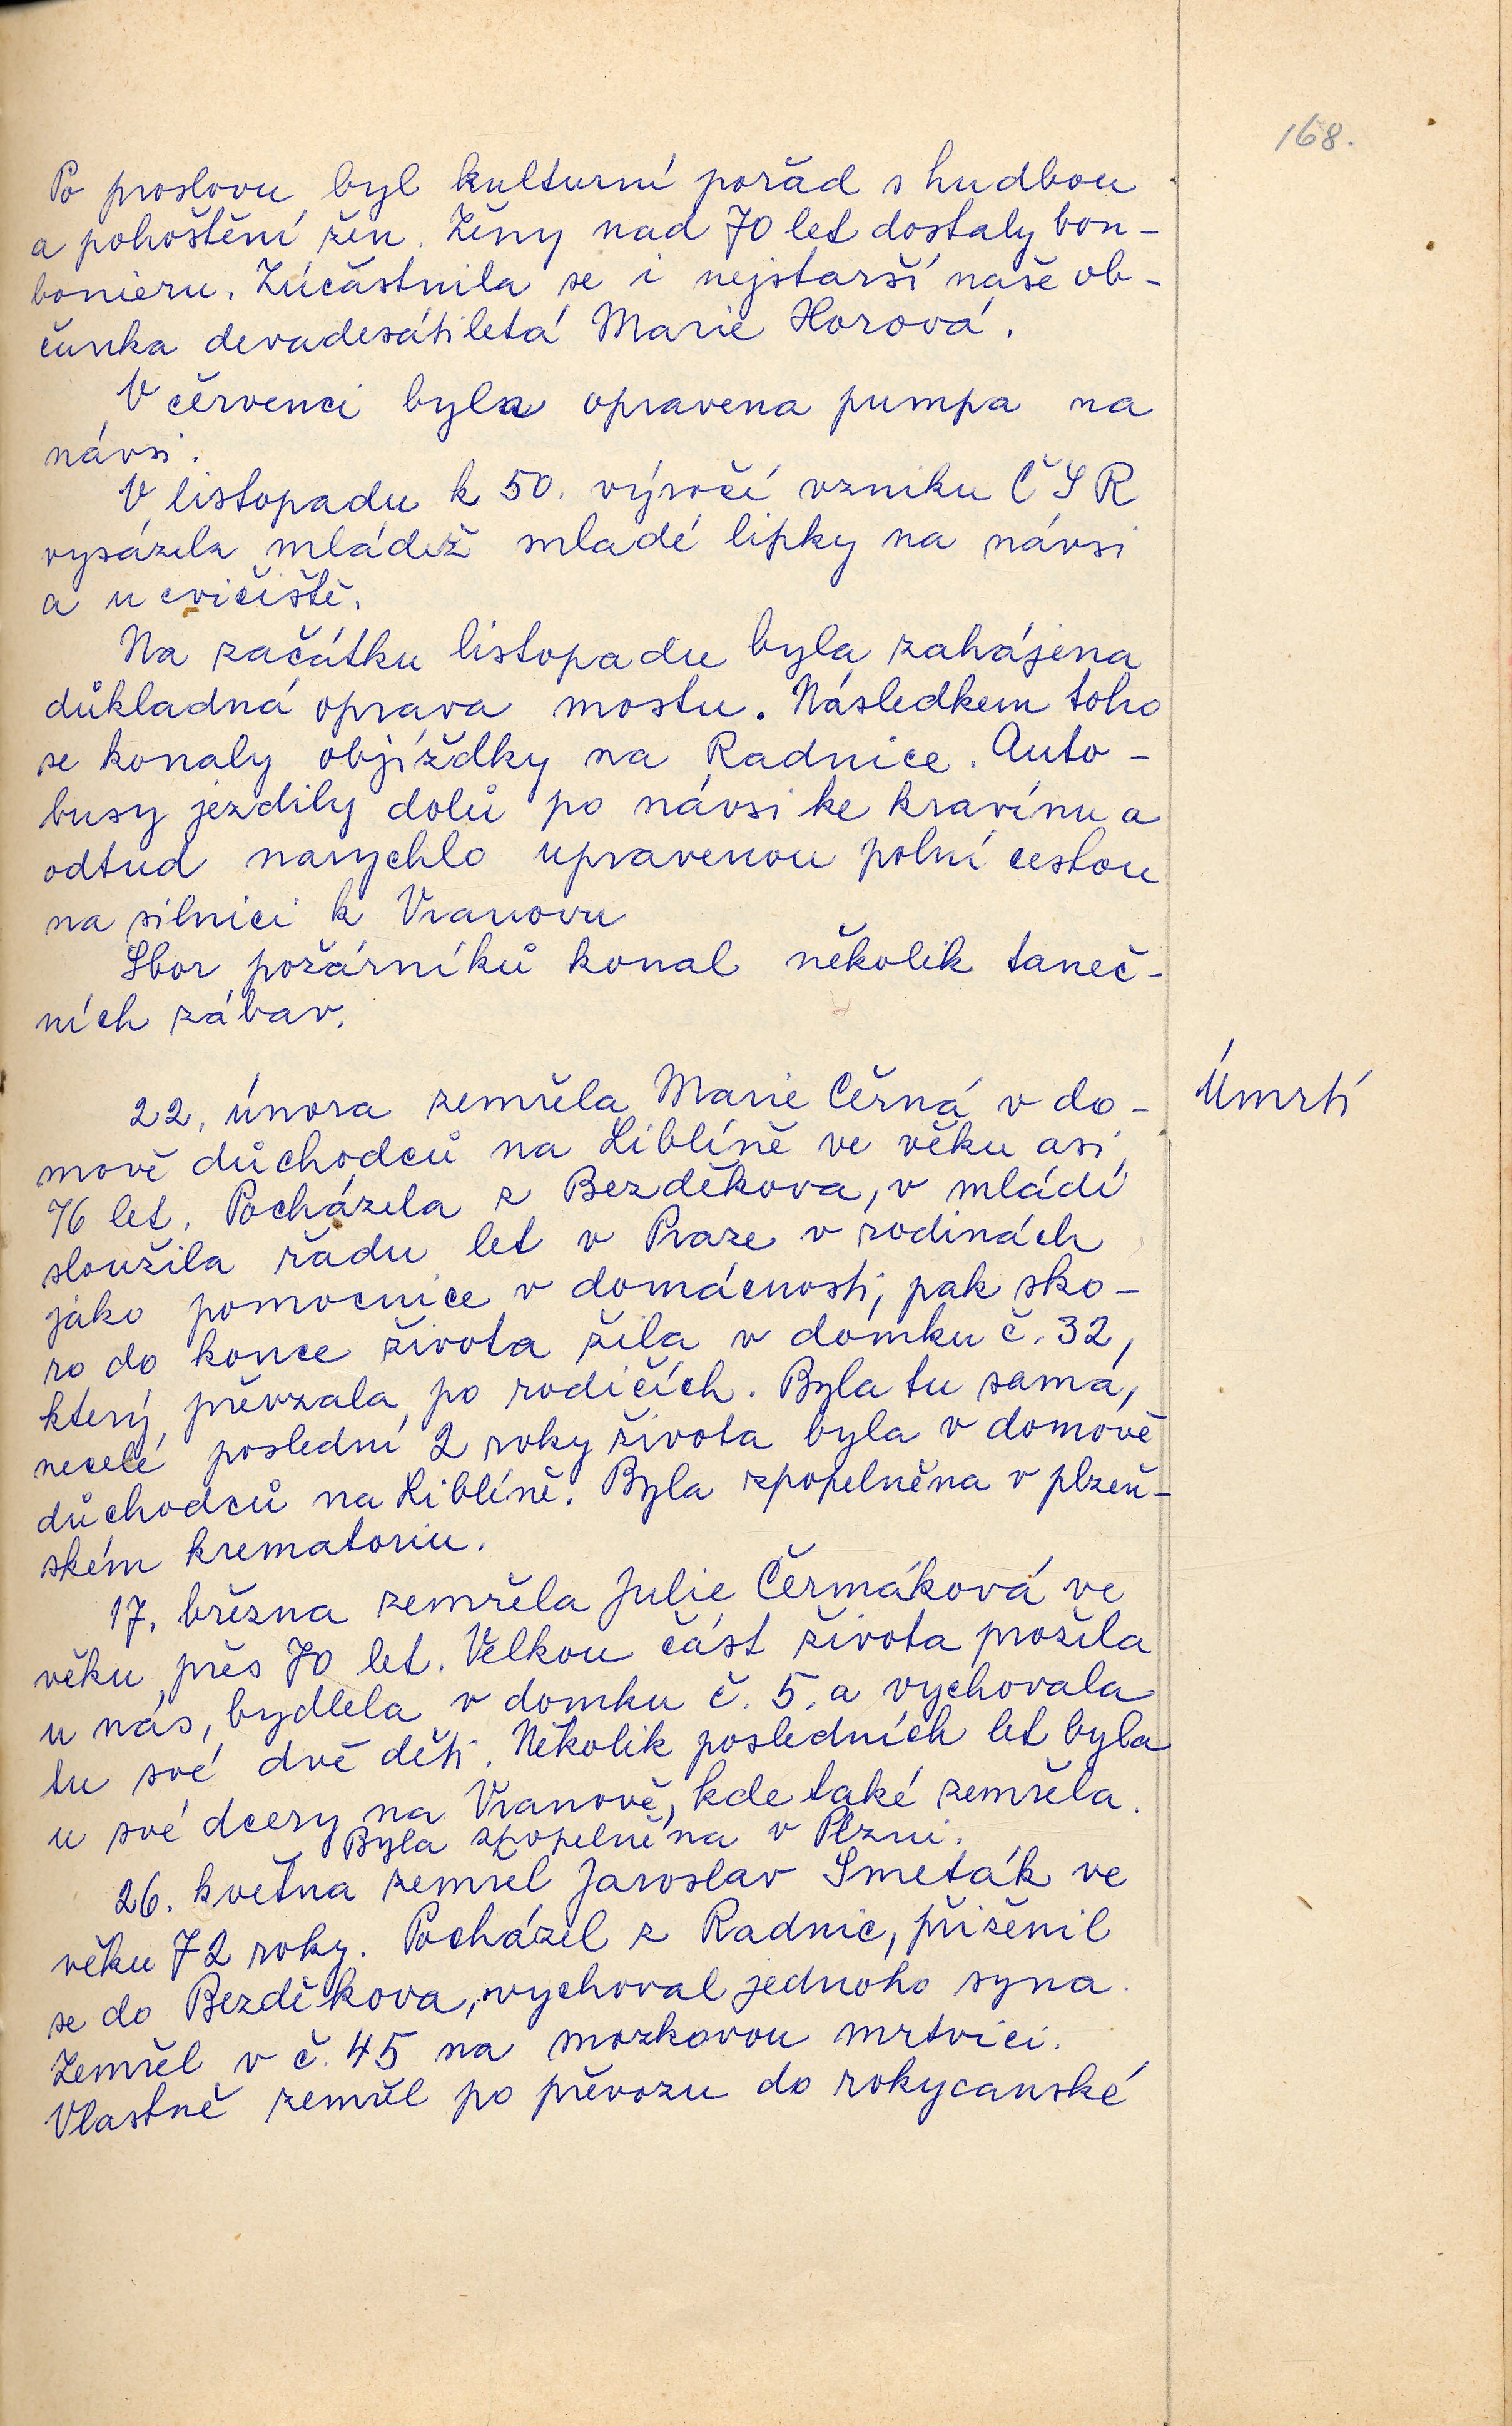 168.
Po proslovu byl kulturní pořad s hudbou
a pohoštění žen. Ženy nad 70 let dostaly bon-
bonieru. Zúčastnila se i nejstarší naše ob-
čanka devadesátiletá Marie Horová.
V červenci byla opravena pumpa na
návsi.
V listopadu k 50. výročí vzniku ČSR
vysázela mládež mladé lipky na návsi
a u cvičiště.
Na začátku listopadu byla zahájena
důkladná oprava mostu. Následkem toho
se konaly objíždky na Radnice. Auto-
busy jezdily dolů po návsi ke kravínu a
odtud narychlo upravenou polní cestou
na silnici k Vranovu
Sbor požárníků konal několik taneč-
ních zábav.
Úmrtí
22. února zemřela Marie Černá v do-
mově důchodců na Liblíně ve věku asi
76 let. Pocházela z Bezděkova, v mládí
sloužila řadu let v Praze v rodinách
jako pomocnice v domácnosti, pak sko-
ro do konce života žila v domku č. 32,
který převzala po rodičích. Byla tu sama,
necelé poslední 2 roky života byla v domově
důchodců na Liblíně. Byla zpopelněna v plzeň-
ském krematoriu.
17. března zemřela Julie Čermáková ve
věku přes 70 let. Velkou část života prožila
u nás, bydlela v domku č. 5. a vychovala
tu své dvě děti. Několik posledních let byla
u své dcery na Vranově, kde také zemřela.
Byla zpopelněna v Plzni.
26. května zemřel Jaroslav Smeták ve
věku 72 roky. Pocházel z Radnic, přiženil
se do Bezděkova, vychoval jednoho syna.
Zemřel v č. 45 na mozkovou mrtvici.
Vlastně zemřel po převozu do rokycanské